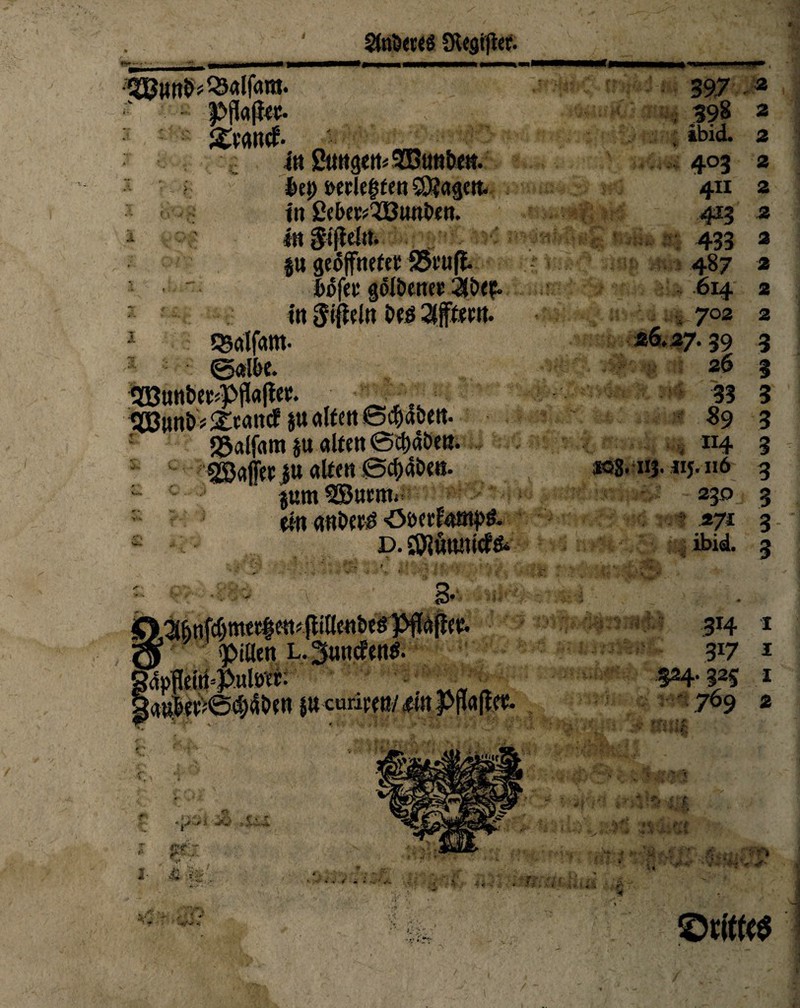 Anderes Register.
Wund-Balsam. 397 2
Pflaster. 398 2
Tranck. ibid. 2
in Lungen-Wunden. 403 2
bey verletzten Magen. 411 2
in Leber-Wunden. 413 2
in Fisteln. 433 2
zu geöffneter Brust. 487 2
böser göldener Ader. 614 2
in Fisteln des Afftern. 702 2
Balsam. 26. 27. 39 3
Salbe. 26 3
Wunder-Pflaster. 33 3
Wund-Tranck zu alten Schäden. 89 3
Balsam zu alten Schäden. 114 3
Wasser zu alten Schäden. 108. 113. 115. 116 3
zum Wurm. 230 3
ein anders Overkamps. 271 3
D. Münnicks. ibid. 3
Z.
Zahnschmertzen-stillendes Pflaster. 314 1
Pillen L. Junckens. 317 1
Zäpflein-Pulver. 324. 325 1
Zauber-Schäden zu curiren/ ein Pflaster. 769 2
Drittes